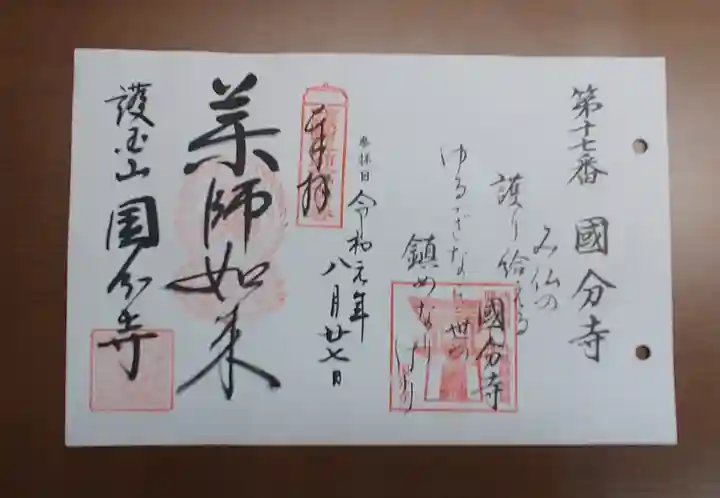 第十七番 國分寺
み仏の
護り給える
國分寺
ゆるぎなき世の
鎮めなりけり
参拝日 令和元年
八月廿七日
奉拝
薬師如来
護国山 国分寺